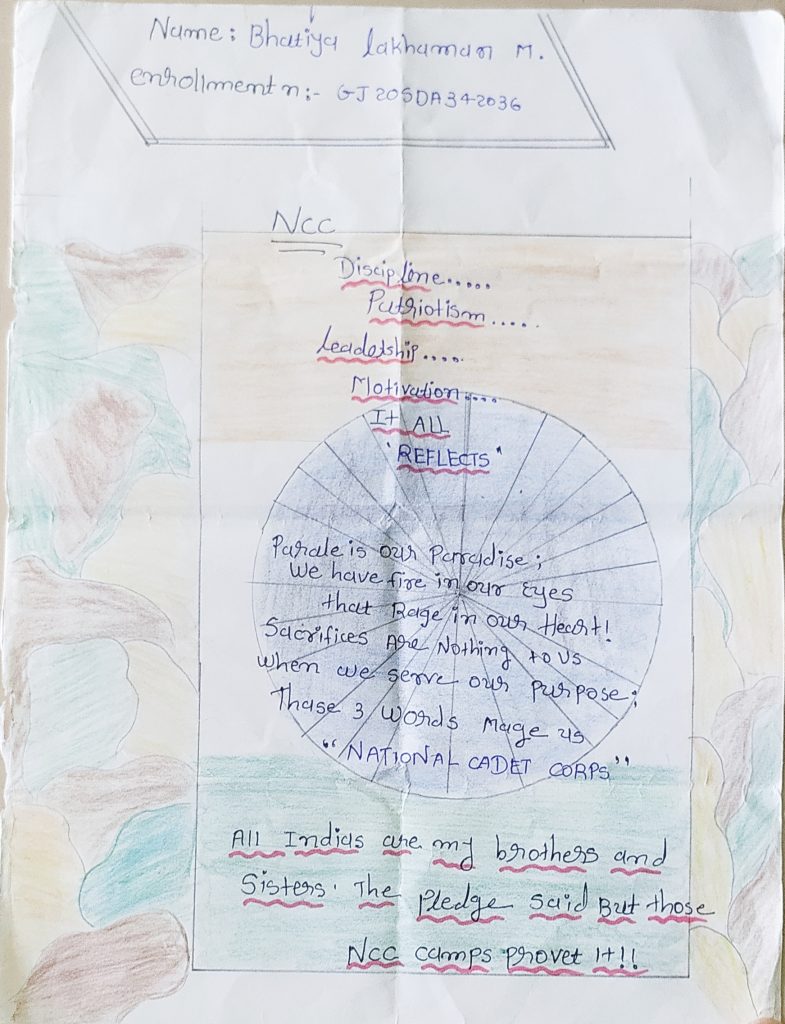 Name: Bhatiya lakhaman M.
enrollment n:- GJ20SDA342036
NCC
Discipline.....
Patriotism.....
Leadership....
Motivation....
It ALL
"REFLECTS"
Parale is our Parradise;
We have fire in our Eyes
that Rage in our Heart!
Sacrifices Are Nothing to us
when we serve our purpose;
Thase 3 Words Mage us
"NATIONAL CADET CORPS"
All Indias are my brothers and
Sisters. The Pledge said But those
Ncc camps provet It!!